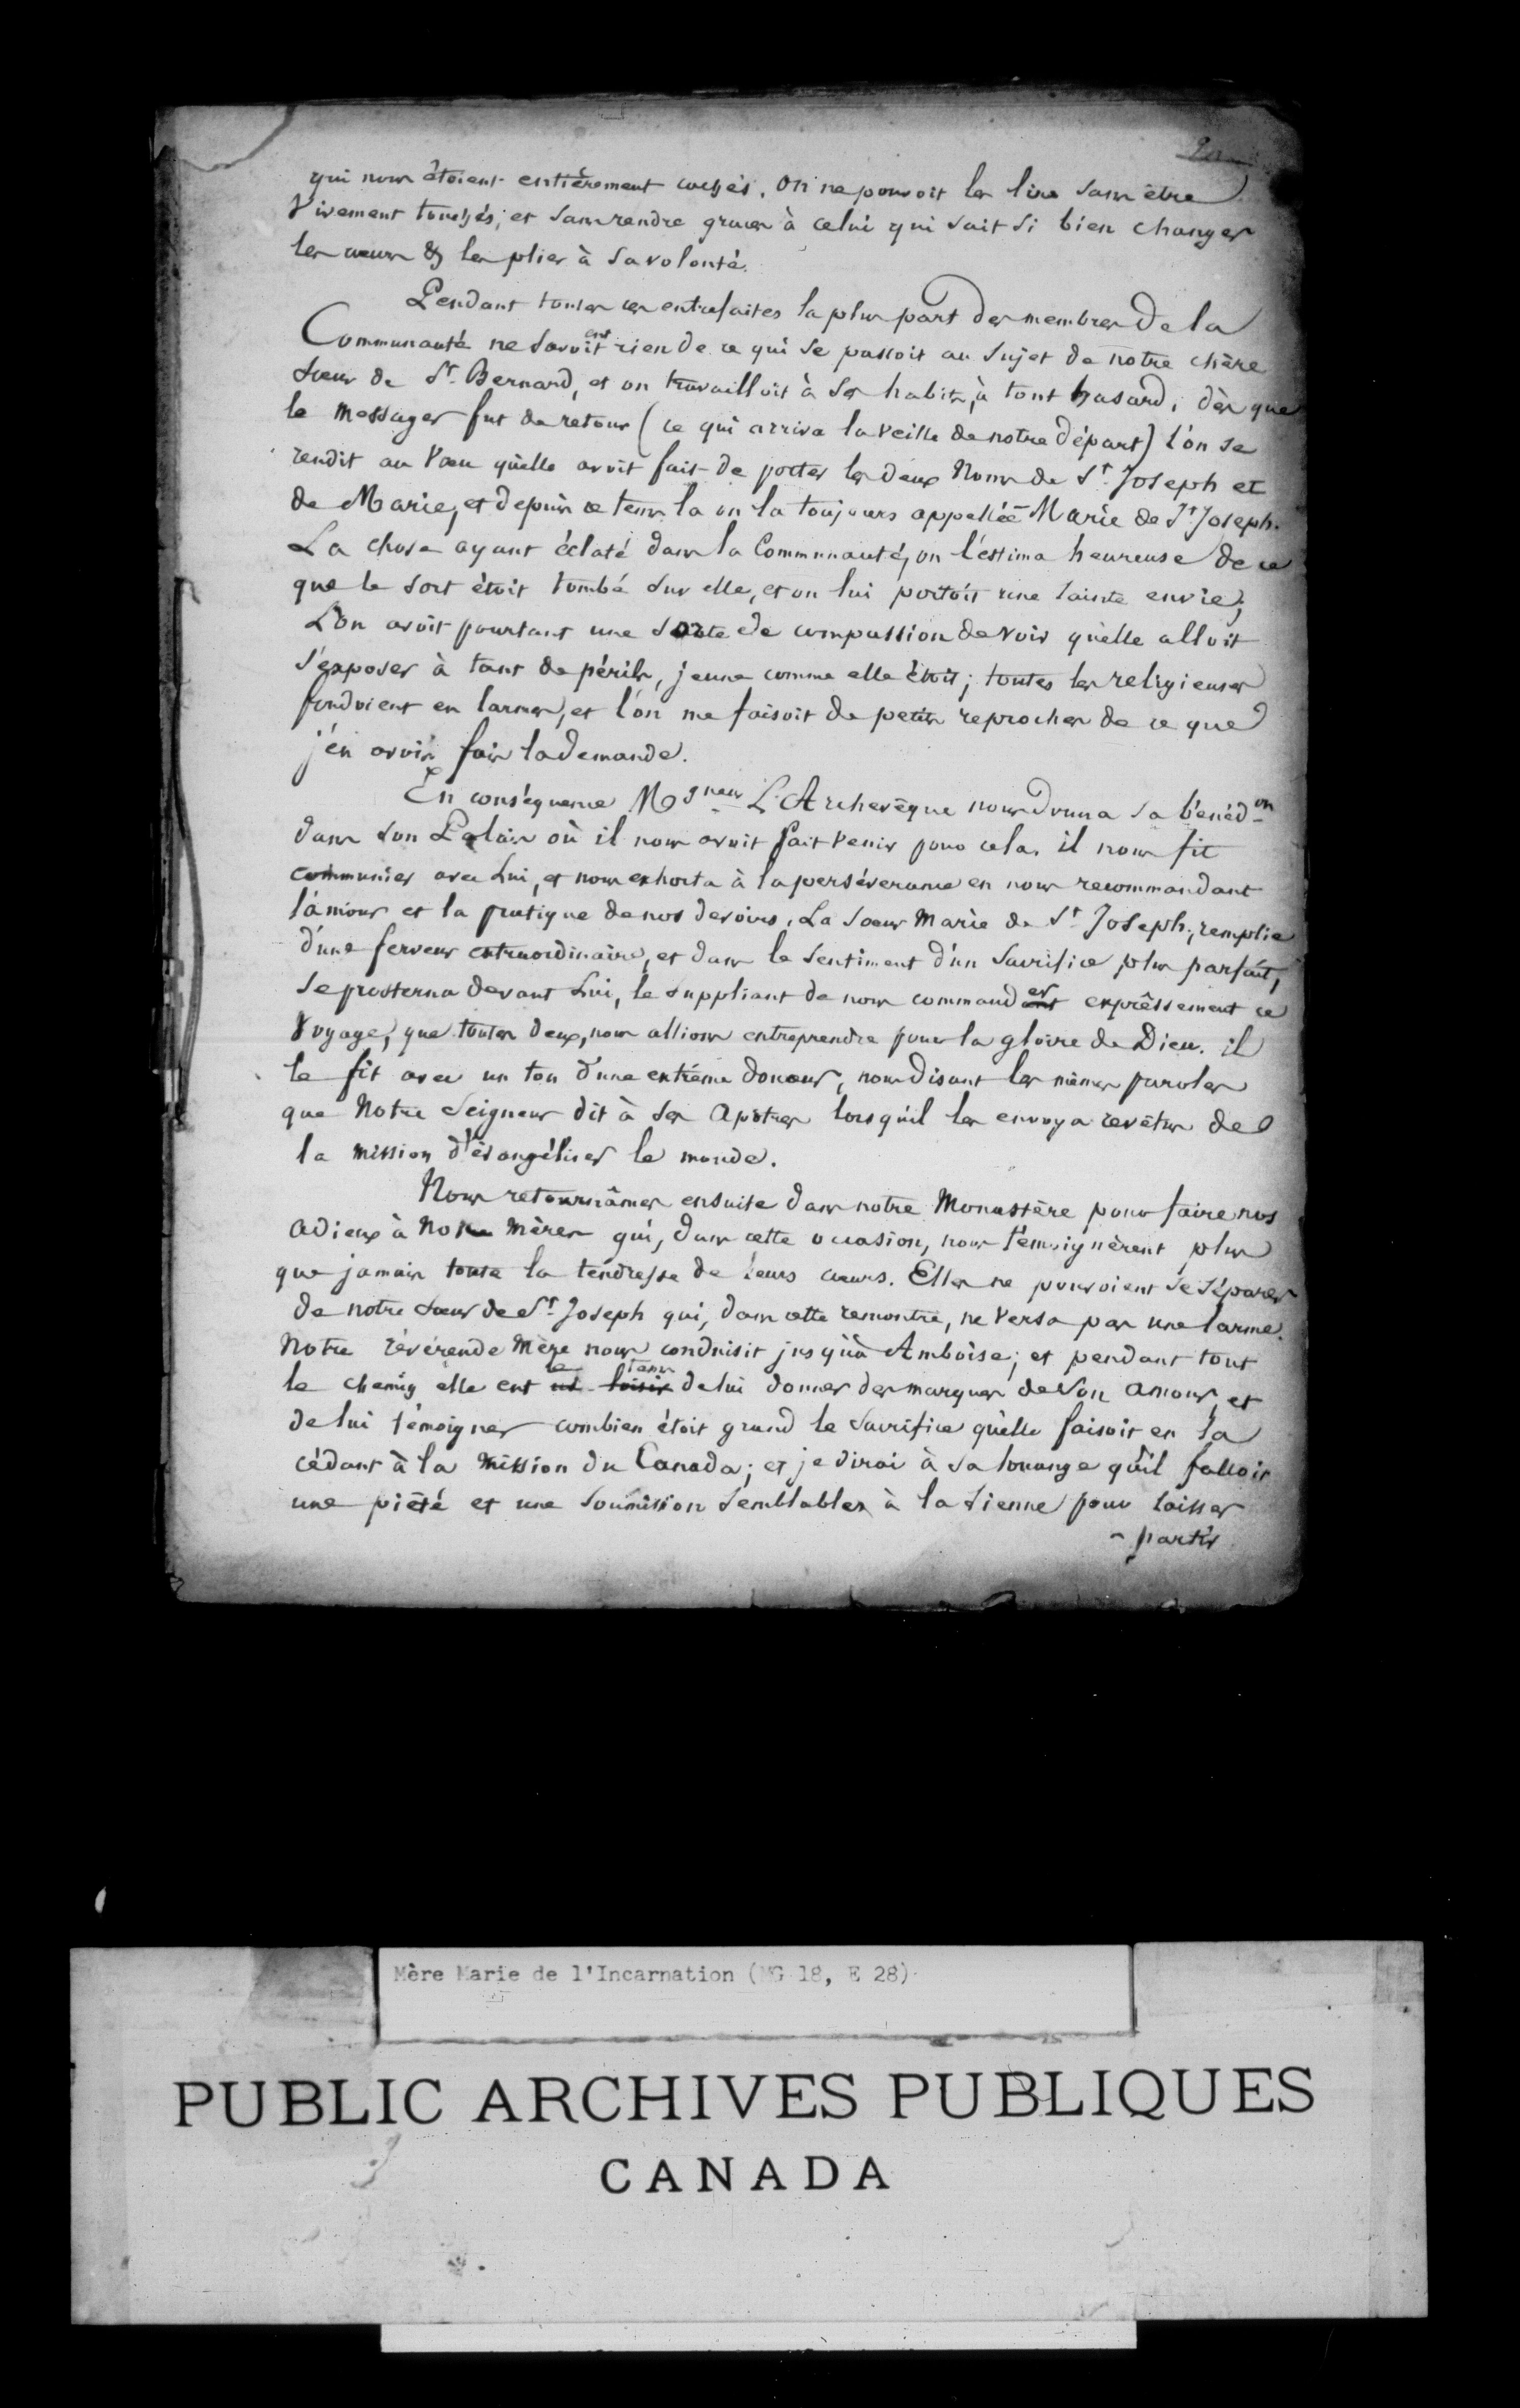 qui nous étoient entièrement cachés. On ne pouvoit les lire sans être
Vivement touchés, et sans rendre graces à celui qui sait si bien changer
les cœurs & les plier à sa volonté.
Pendant toutes ces entrefaites la plus part des membres de la
Communauté ne savoient rien de ce qui se passoit au sujet de notre chère
Sœur de St. Bernard, et on travailloit à ses habits, à tout hasard, dès que
le Messager fut de retour (ce qui arriva la veille de notre départ) l'on se
rendit au Vœu qu'elle avoit fait de porter les deux Noms de St. Joseph et
de Marie, et depuis ce tems la on la toujours appellée Marie de St. Joseph.
La chose ayant éclaté dans la Communauté, on l'estima heureuse de ce
que le sort étoit tombé sur elle, et on lui portoit une sainte envie;
L'on avoit pourtant une sorte de compassion de voir qu'elle alloit
s'exposer à tant de périls, jeune comme elle étoit; toutes les religieuses
fondoient en larmes, et l'on me faisoit de petits reproches de ce que
j'en avois fais la demande.
En conséquence Mgneur L'Archevêque nous donna sa bénédon
dans son Palais où il nous avoit fait venir pour cela. il nous fit
communier avec Lui, et nous exhorta à la perséverance en nous recommandant
l'amour et la pratique de nos devoirs. La Soeur Marie de St. Joseph, remplie
d'une ferveur extraordinaire, et dans le sentiment d'un Sacrifice plus parfait,
se prosterna devant Lui, le suppliant de nous commander expressement ce
Voyage, que toutes deux, nous allions entreprendre pour la gloire de Dieu. il
le fit avec un ton d'une extrême douceur, nous disant les mêmes paroles
que Notre Seigneur dit à ses Apôtres lorsqu'il les envoya revêtus de
la mission d'évangéliser le monde.
Nous retournâmes ensuite dans notre Monastère pour faire nos
Adieux à nos Mères qui, dans cette occasion, nous témoignèrent plus
que jamais toute la tendresse de leurs cœurs. Elles ne pouvoient se séparer
de notre Sœur de St. Joseph qui, dans cette rencontre, ne versa pas une larme.
Notre révérende Mère nous conduisit jusqu'à Amboise; et pendant tout
le chemin elle eut le tems de lui donner des marques de son Amour, et
de lui témoigner combien étoit grand le Sacrifice qu'elle faisoit en la
cédant à la Mission du Canada; et je dirai à sa louange qu'il falloit
une piété et une soumission semblables à la sienne pour laisser
partir
Mère Marie de l'Incarnation (MG 18, E 28)
PUBLIC ARCHIVES PUBLIQUES
CANADA